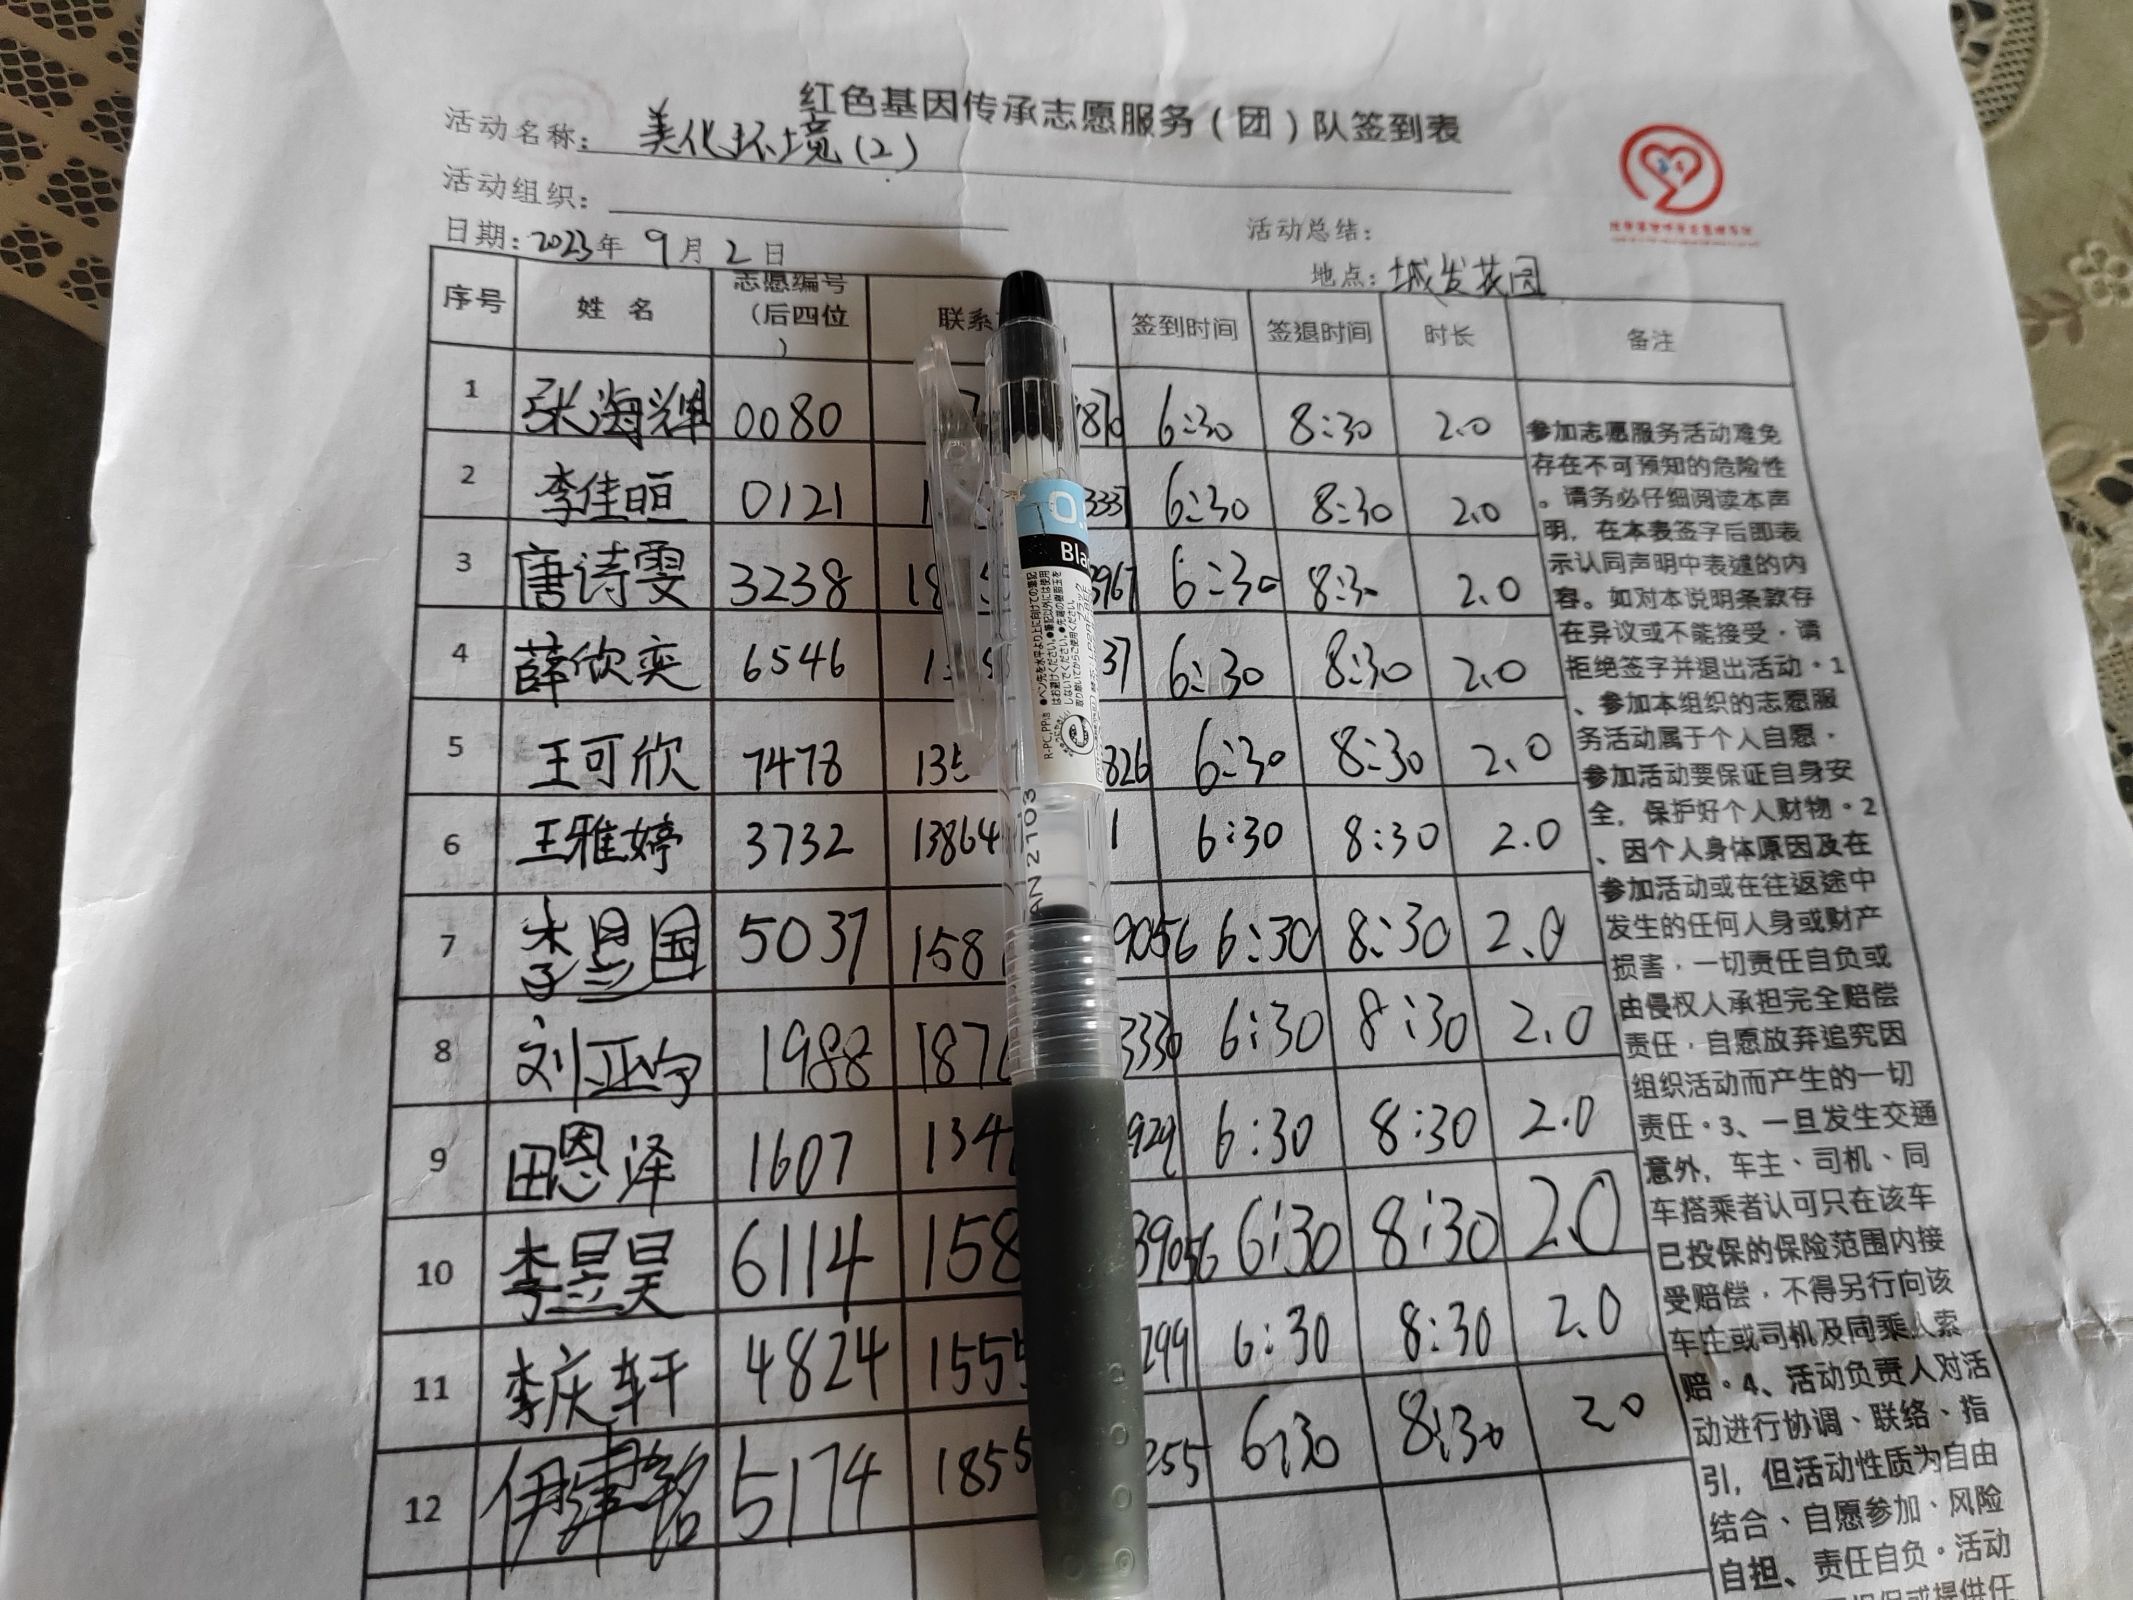 红色基因传承志愿服务（团）队签到表
活动名称：美化环境（2）
活动组织：
活动总结：
日期：2023年9月2日
地点：城发花园
序号 姓名 志愿编号（后四位） 联系 签到时间 签退时间 时长 备注
1 张海辉 0080 6:30 8:30 2.0
2 李佳晅 0121 1 3337 6:30 8:30 2.0
3 唐诗雯 3238 18 3967 6:30 8:30 2.0
4 薛欣奕 6546 13 37 6:30 8:30 2.0
5 王可欣 7478 135 826 6:30 8:30 2.0
6 王雅婷 3732 13864 1 6:30 8:30 2.0
7 李昱国 5037 158 9056 6:30 8:30 2.0
8 刘亚宁 1988 1876 3336 6:30 8:30 2.0
9 田恩泽 1607 134 929 6:30 8:30 2.0
10 李昱昊 6114 158 39056 6:30 8:30 2.0
11 李庆轩 4824 1555 299 6:30 8:30 2.0
12 伊 铭 5174 1855 255 6:30 8:30 2.0
参加志愿服务活动难免
存在不可预知的危险性
。请务必仔细阅读本声
明，在本表签字后即表
示认同声明中表述的内
容。如对本说明条款存
在异议或不能接受，请
拒绝签字并退出活动。1
、参加本组织的志愿服
务活动属于个人自愿，
参加活动要保证自身安
全，保护好个人财物。2
、因个人身体原因及在
参加活动或在往返途中
发生的任何人身或财产
损害，一切责任自负或
由侵权人承担完全赔偿
责任，自愿放弃追究因
组织活动而产生的一切
责任。3、一旦发生交通
意外，车主、司机、同
车搭乘者认可只在该车
已投保的保险范围内接
受赔偿，不得另行向该
车主或司机及同乘人索
赔。4、活动负责人对活
动进行协调、联络、指
引，但活动性质为自由
结合、自愿参加、风险
自担、责任自负。活动
0.
Bla
R-PC,PP
AN 2103